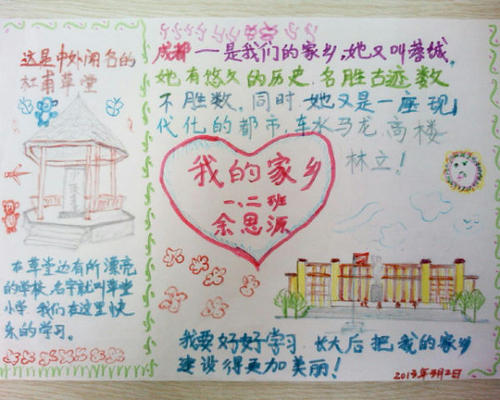 这是中外闻名的
杜甫草堂
成都一是我们的家乡,她又叫蓉城。
她有悠久的历史,名胜古迹数
不胜数,同时,她又是一座现
代化的都市,车水马龙,高楼
林立!
我的家乡
一.二班
余思源
在草堂边有所漂亮
的学校,名字就叫草堂
小学,我们在这里快
乐的学习。
我要好好学习,长大后把我的家乡
建设得更加美丽!
2013年